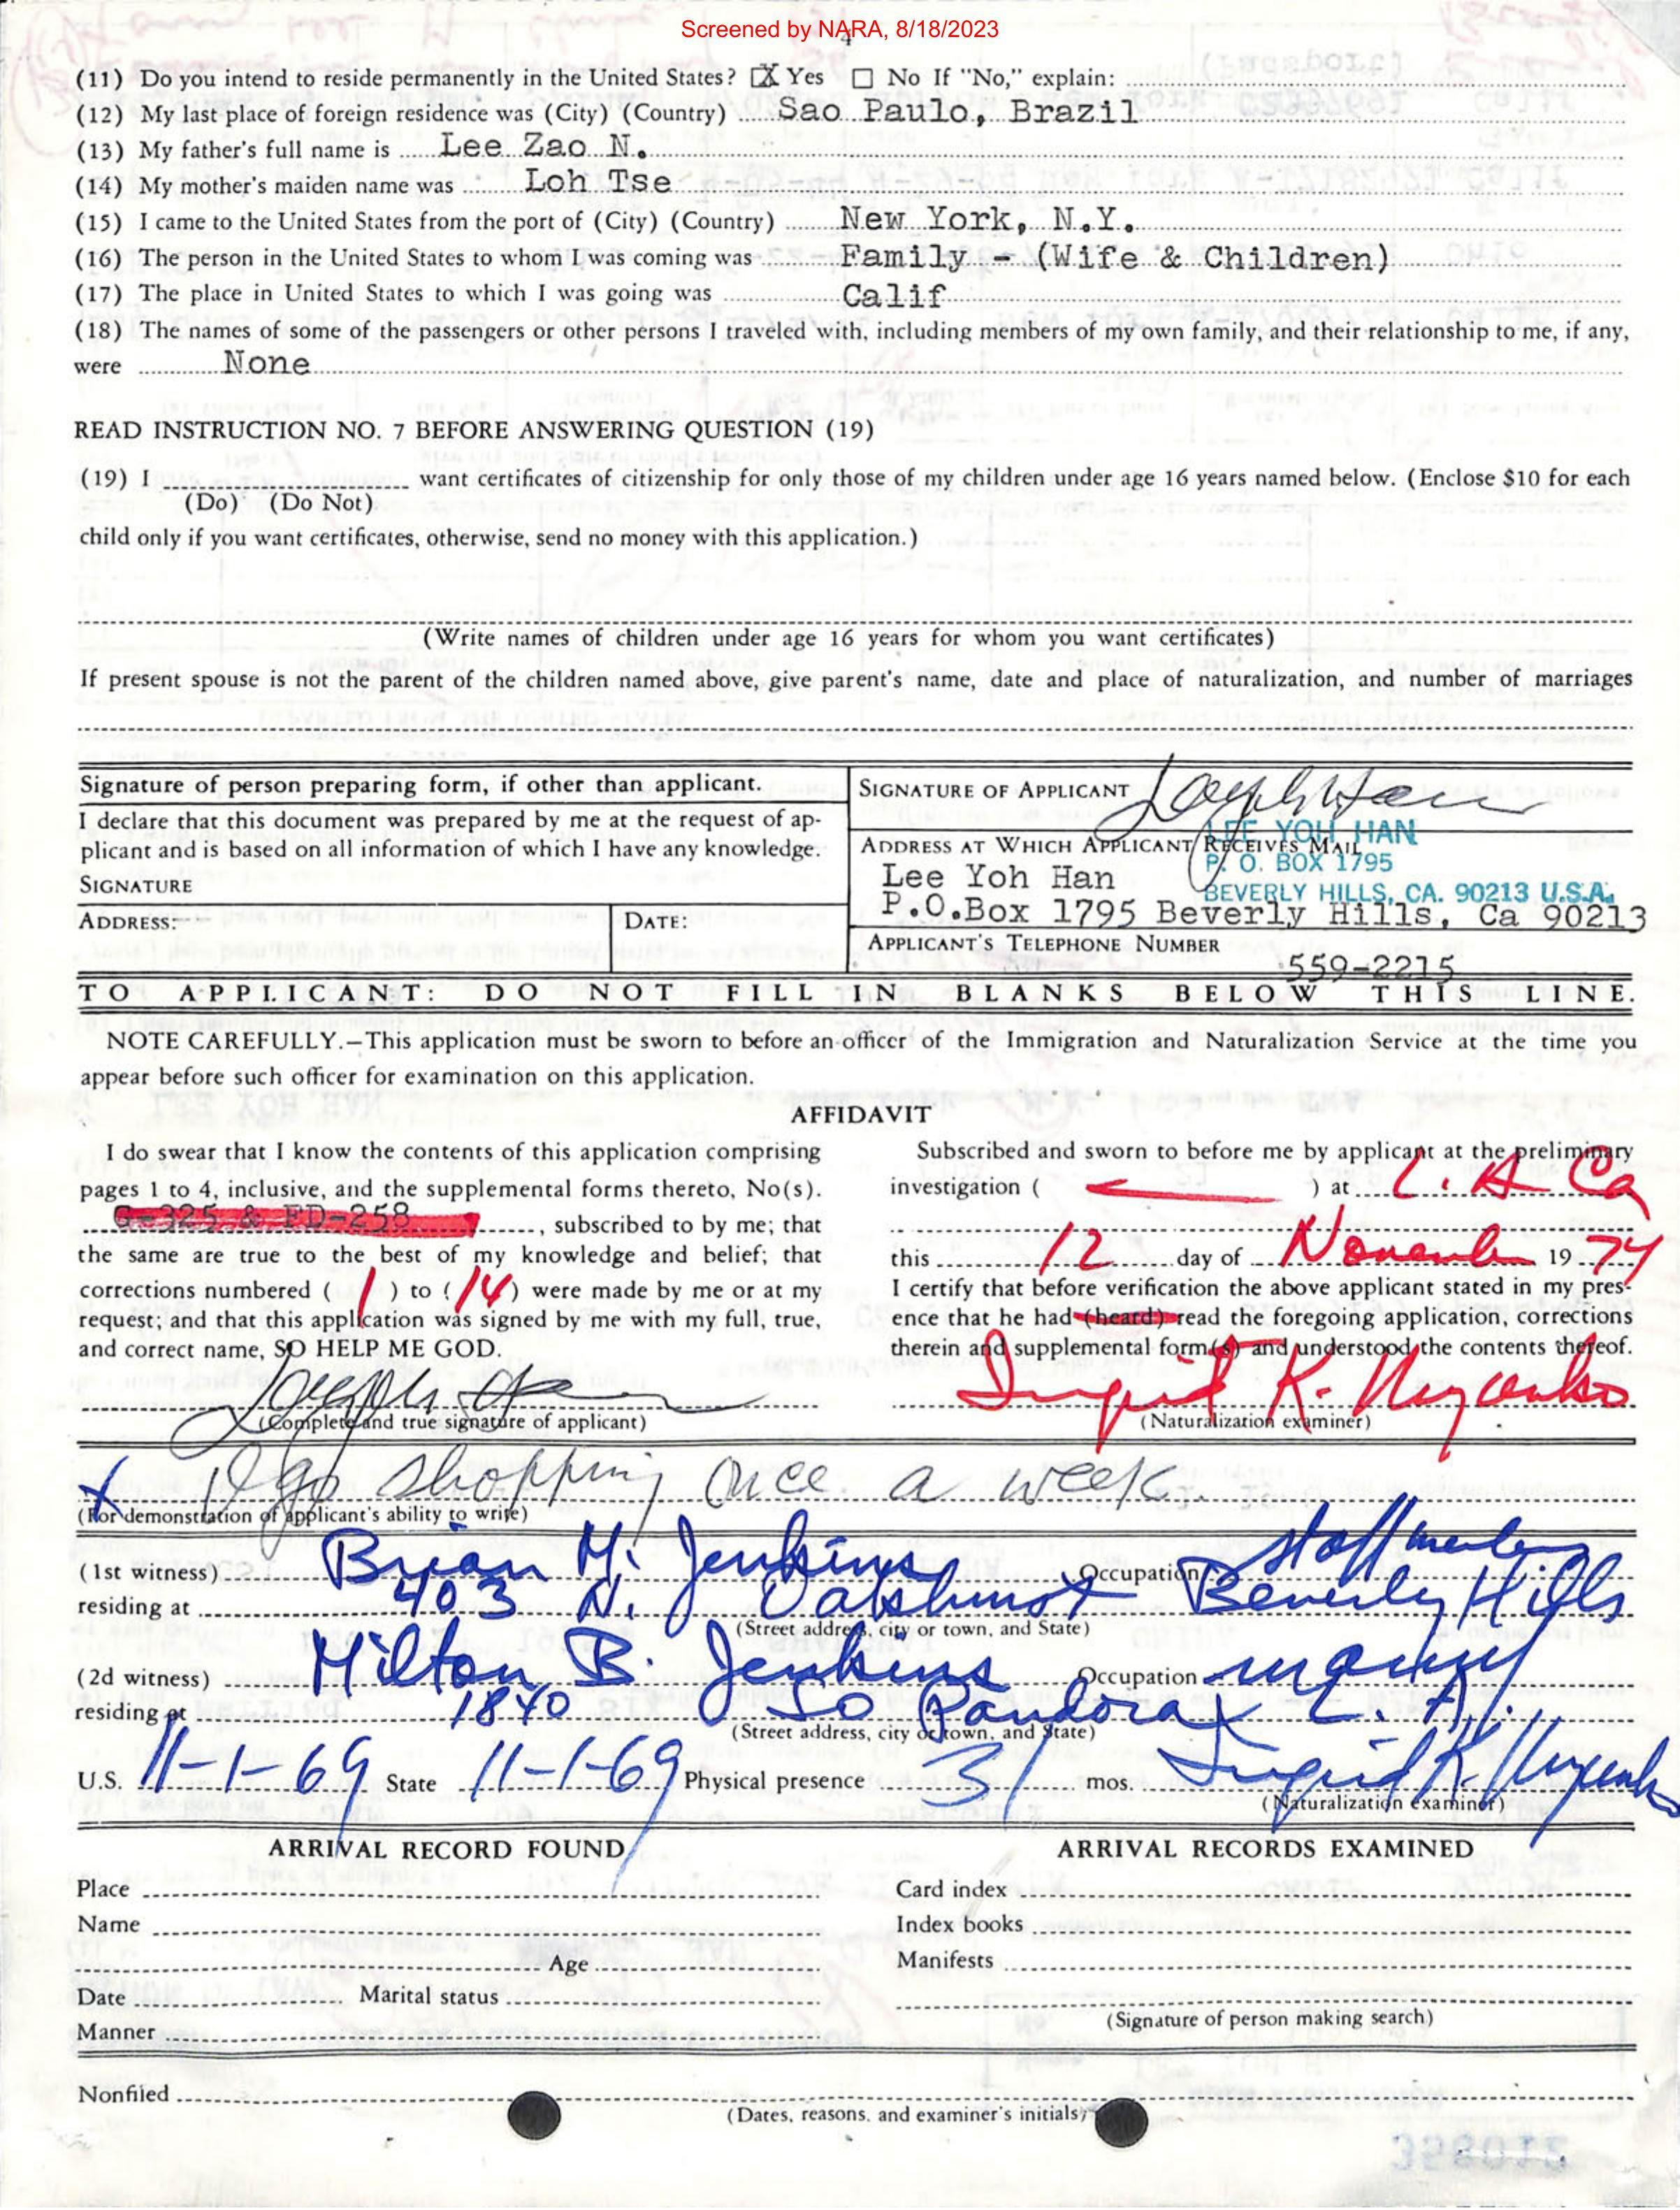 Screened by NARA, 8/18/2023
4
(11) Do you intend to reside permanently in the United States? ☒ Yes ☐ No If "No," explain:
(12) My last place of foreign residence was (City) (Country) Sao Paulo, Brazil
(13) My father's full name is Lee Zao N.
(14) My mother's maiden name was Loh Tse
(15) I came to the United States from the port of (City) (Country) New York, N.Y.
(16) The person in the United States to whom I was coming was Family - (Wife & Children)
(17) The place in United States to which I was going was Calif
(18) The names of some of the passengers or other persons I traveled with, including members of my own family, and their relationship to me, if any,
were None
READ INSTRUCTION NO. 7 BEFORE ANSWERING QUESTION (19)
(19) I want certificates of citizenship for only those of my children under age 16 years named below. (Enclose $10 for each
(Do) (Do Not)
child only if you want certificates, otherwise, send no money with this application.)
(Write names of children under age 16 years for whom you want certificates)
If present spouse is not the parent of the children named above, give parent's name, date and place of naturalization, and number of marriages
Signature of person preparing form, if other than applicant.
I declare that this document was prepared by me at the request of ap-
plicant and is based on all information of which I have any knowledge.
SIGNATURE
ADDRESS: DATE:
SIGNATURE OF APPLICANT
LEE YOH HAN
ADDRESS AT WHICH APPLICANT RECEIVES MAIL
P. O. BOX 1795
Lee Yoh Han
BEVERLY HILLS, CA. 90213 U.S.A.
P.O.Box 1795 Beverly Hills, Ca 90213
APPLICANT'S TELEPHONE NUMBER
559-2215
TO APPLICANT: DO NOT FILL IN BLANKS BELOW THIS LINE.
NOTE CAREFULLY.—This application must be sworn to before an officer of the Immigration and Naturalization Service at the time you
appear before such officer for examination on this application.
AFFIDAVIT
I do swear that I know the contents of this application comprising
pages 1 to 4, inclusive, and the supplemental forms thereto, No(s).
G-325 & FD-258, subscribed to by me; that
the same are true to the best of my knowledge and belief; that
corrections numbered ( 1 ) to ( 14 ) were made by me or at my
request; and that this application was signed by me with my full, true,
and correct name, SO HELP ME GOD.
(Complete and true signature of applicant)
Subscribed and sworn to before me by applicant at the preliminary
investigation ( ) at L. A Ca
this 12 day of November 19 74
I certify that before verification the above applicant stated in my pres-
ence that he had (heard) read the foregoing application, corrections
therein and supplemental form(s) and understood the contents thereof.
Ingrid K.
(Naturalization examiner)
X I go shopping once a week.
(For demonstration of applicant's ability to write)
(1st witness) Brian M. Jenkins Occupation staff member
residing at 403 N. Oakhurst Beverly Hills
(Street address, city or town, and State)
(2d witness) Milton B. Jenkins Occupation
residing at 1840 So Pandora L. A.
(Street address, city or town, and State)
U.S. 11-1-69 State 11-1-69 Physical presence 31 mos. Ingrid K.
(Naturalization examiner)
ARRIVAL RECORD FOUND
Place
Name
Age
Date Marital status
Manner
ARRIVAL RECORDS EXAMINED
Card index
Index books
Manifests
(Signature of person making search)
Nonfiled
(Dates, reasons, and examiner's initials)